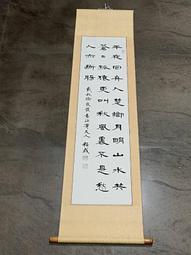 半夜回舟入楚鄉月明山水共
蒼々孤猿更叫秋風裏不是愁
人亦斷腸